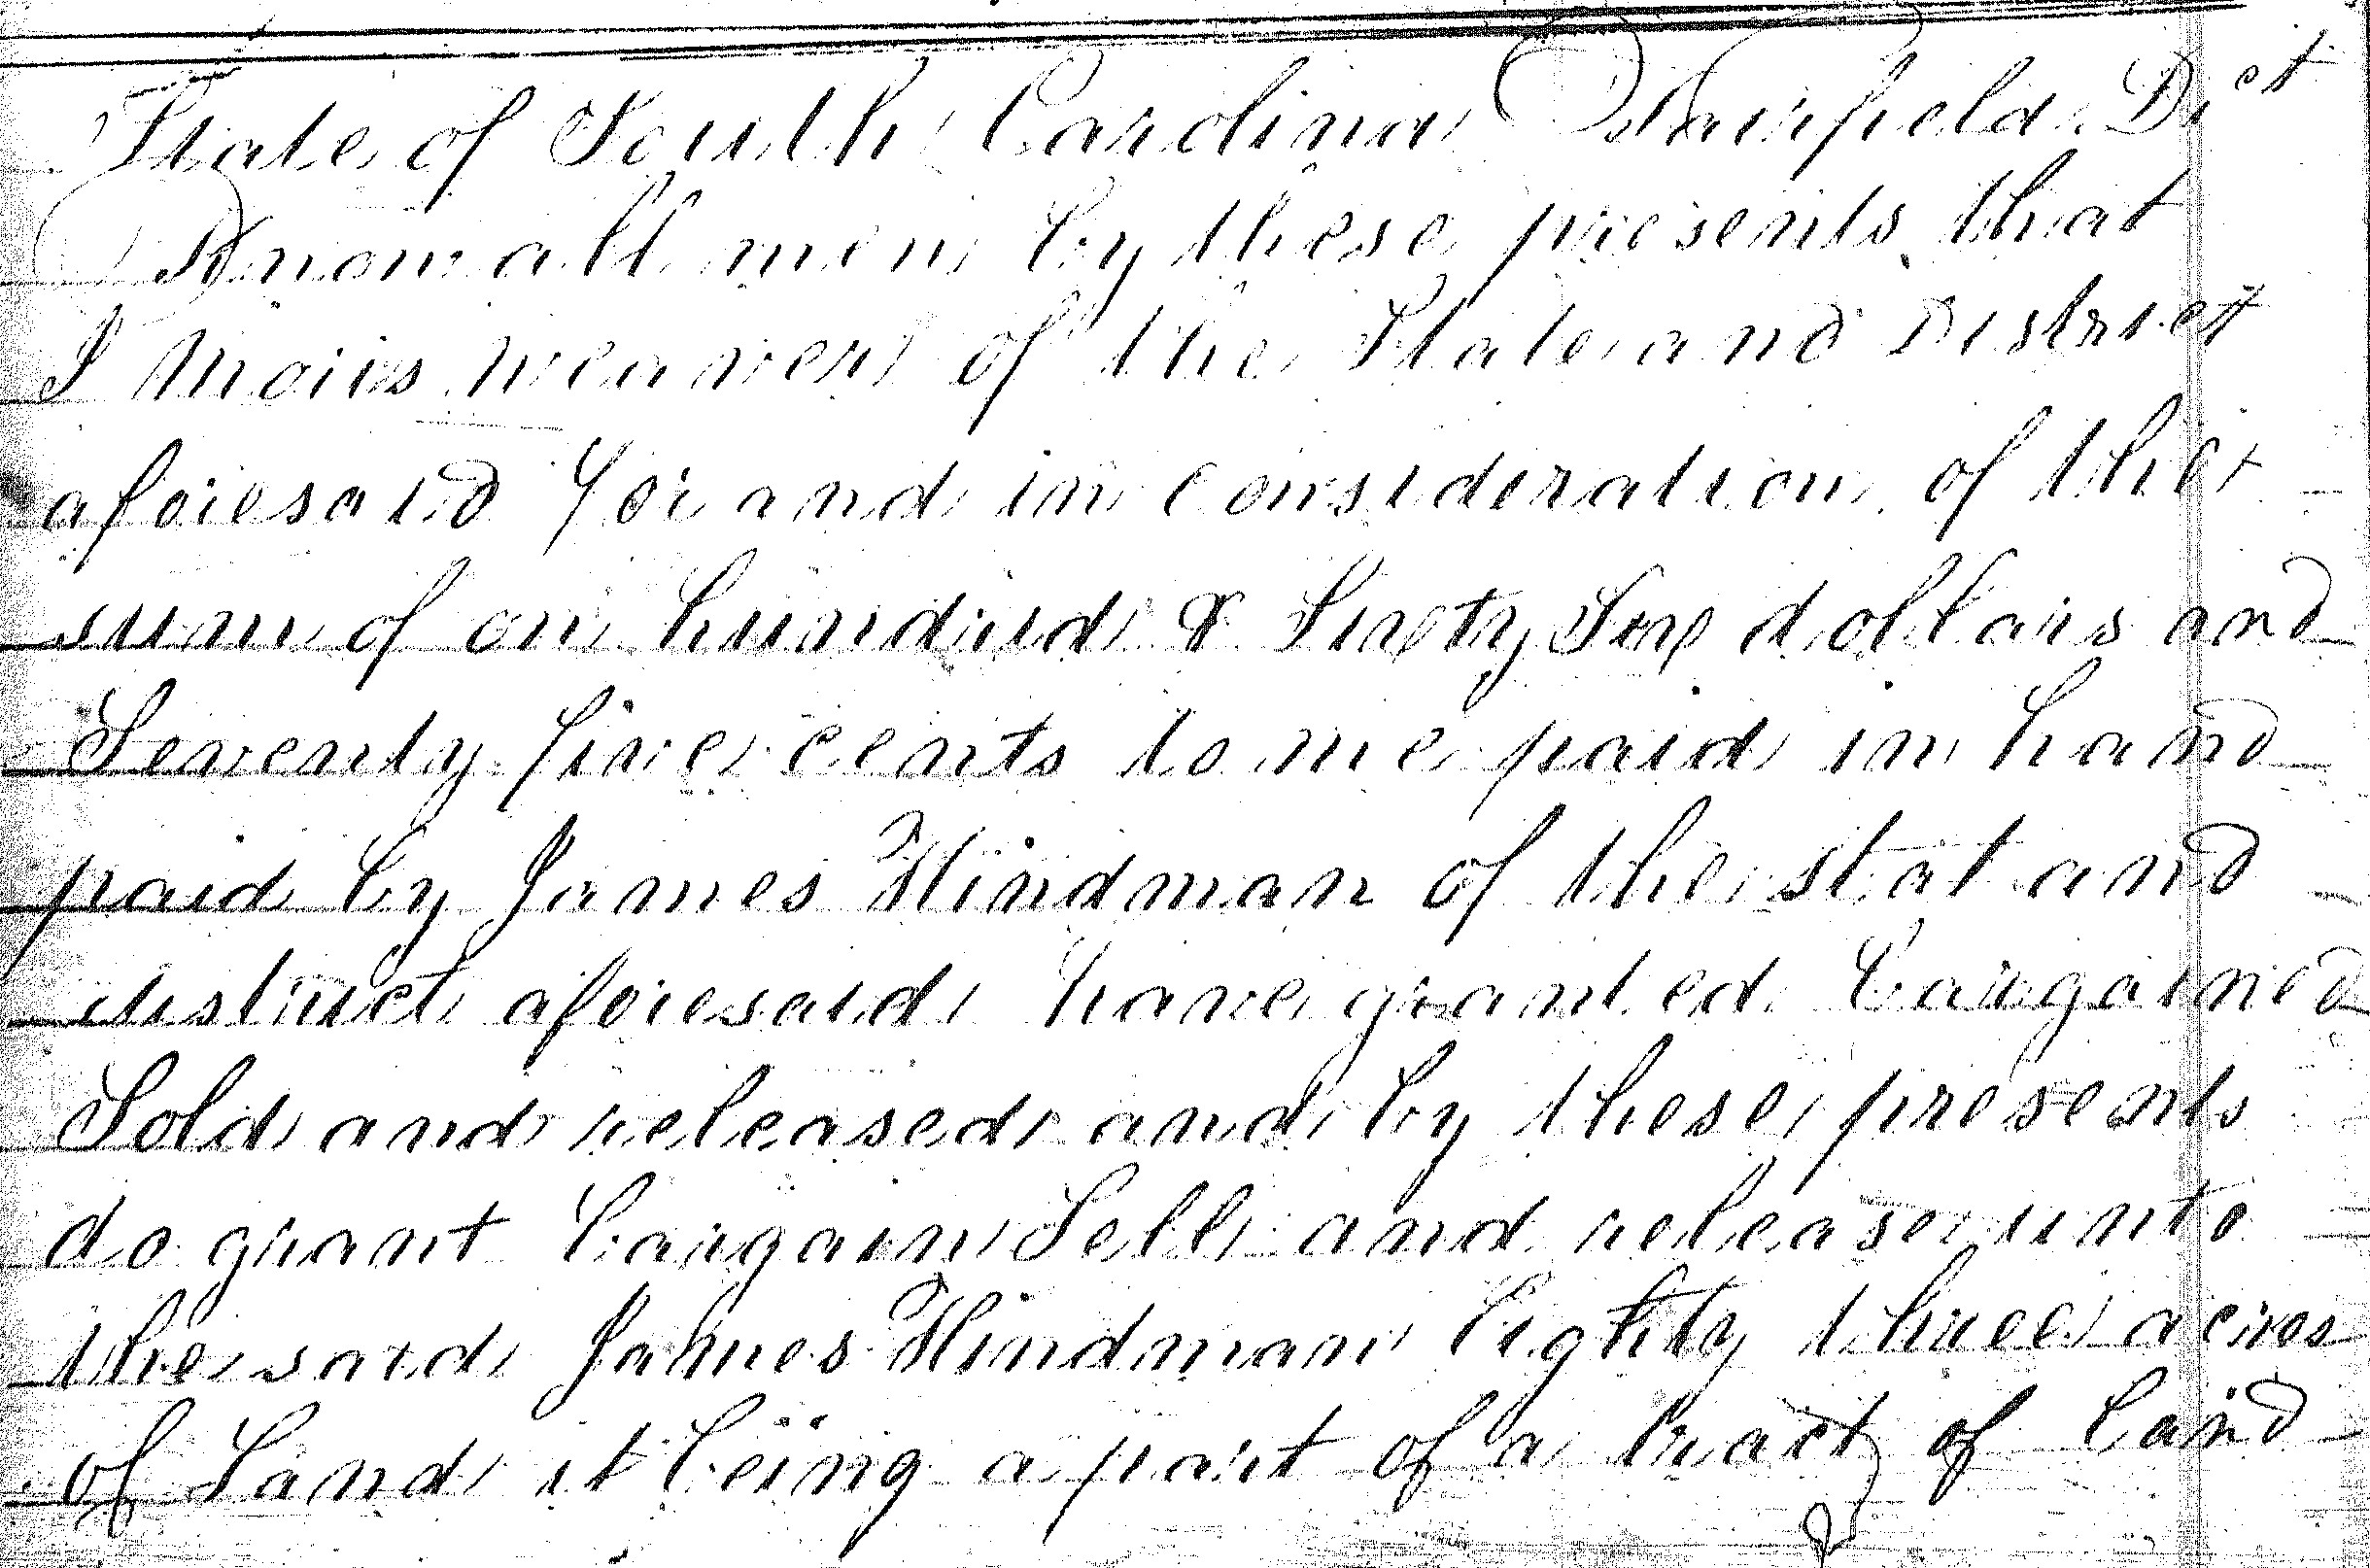 State of South Carolina Fairfield Dict
Know all men by these presents that
I Moris weaver of the State and District
aforesaid for and in consideration of the
sum of on hundred & Sixty Six dollars and
Seventy five cents to me paid in hand
paid by James Hindman of the stat and
district aforesaid have granted bargained
Sold and released and by these presents
do grant bargain Sell and release unto
the said James Hindman Eighty three acres
of Land it being a part of a tract of land